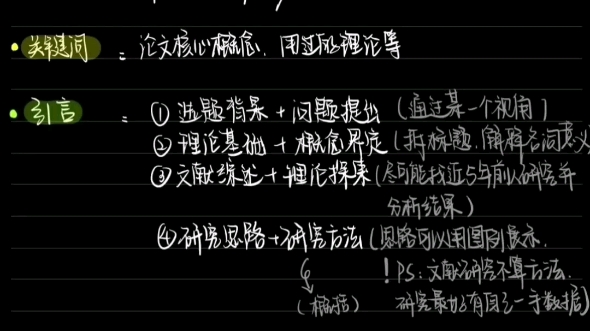 关键词：论文核心概念，用过的理论等
引言：①选题背景+问题提出（通过某一个视角）
②理论基础+概念界定（拆标题，解释名词意义
③文献综述+理论探索（尽可能找近5年前人研究并
分析结果）
④研究思路+研究方法（思路可以用图列展示.
（概括）
！PS：文献研究不算方法.
研究最好有自己一手数据）